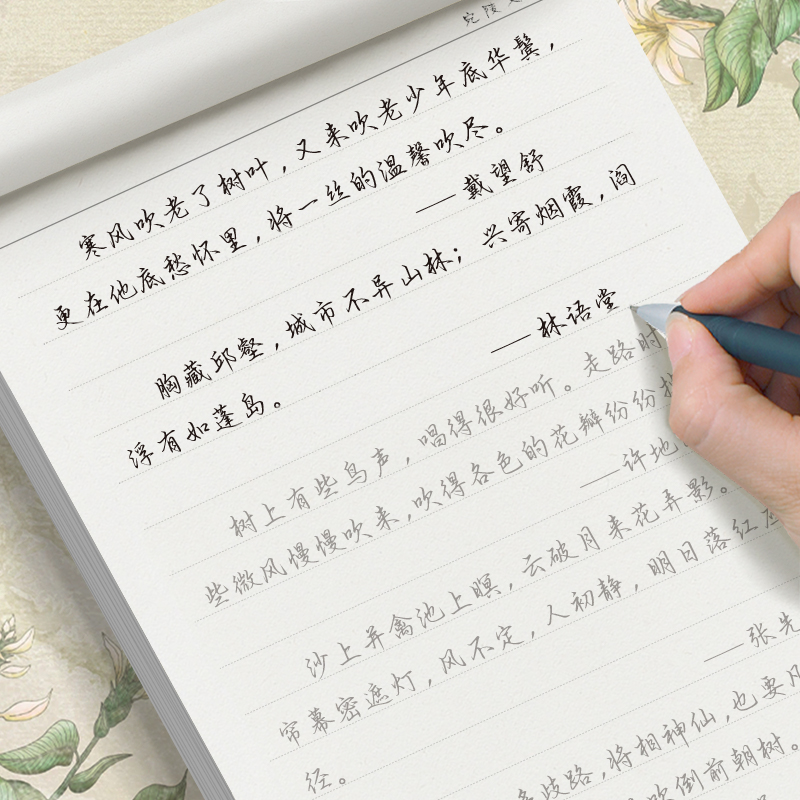 宛陵
寒风吹老了树叶，又来吹老少年底华鬓，
更在他底愁怀里，将一丝的温馨吹尽。
——戴望舒
胸藏邱壑，城市不异山林；兴寄烟霞，阎
浮有如蓬岛。
——林语堂
树上有些鸟声，唱得很好听。走路时
些微风慢慢吹来，吹得各色的花瓣纷纷
——许地
沙上并禽池上暝，云破月来花弄影。
帘幕密遮灯，风不定，人初静，明日落红应
径。
——张先
歧路，将相神仙，也要凡
吹倒前朝树。